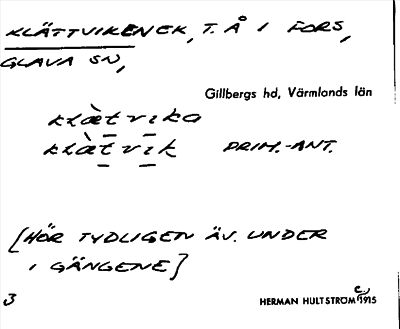 KLÄTTVIKENEK, T. Å I FORS,
GLAVA SN,
Gillbergs hd, Värmlands län
klæ̀tvika
klæ̀tvik PRIM.-ANT.
[HÖR TYDLIGEN ÄV. UNDER
I GÄNGENE]
3 HERMAN HULTSTRÖM c. 1915